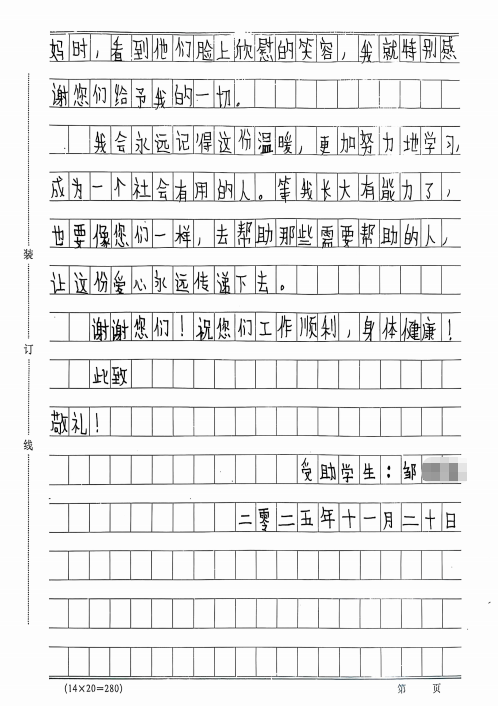 妈时，看到他们脸上欣慰的笑容，我就特别感
谢您们给予我的一切。
我会永远记得这份温暖，更加努力地学习，
成为一个社会有用的人。等我长大有能力了，
也要像您们一样，去帮助那些需要帮助的人，
让这份爱心永远传递下去。
谢谢您们！祝您们工作顺利，身体健康！
此致
敬礼！
受助学生：邹
二零二五年十一月二十日
装
订
线
(14×20=280)
第 页